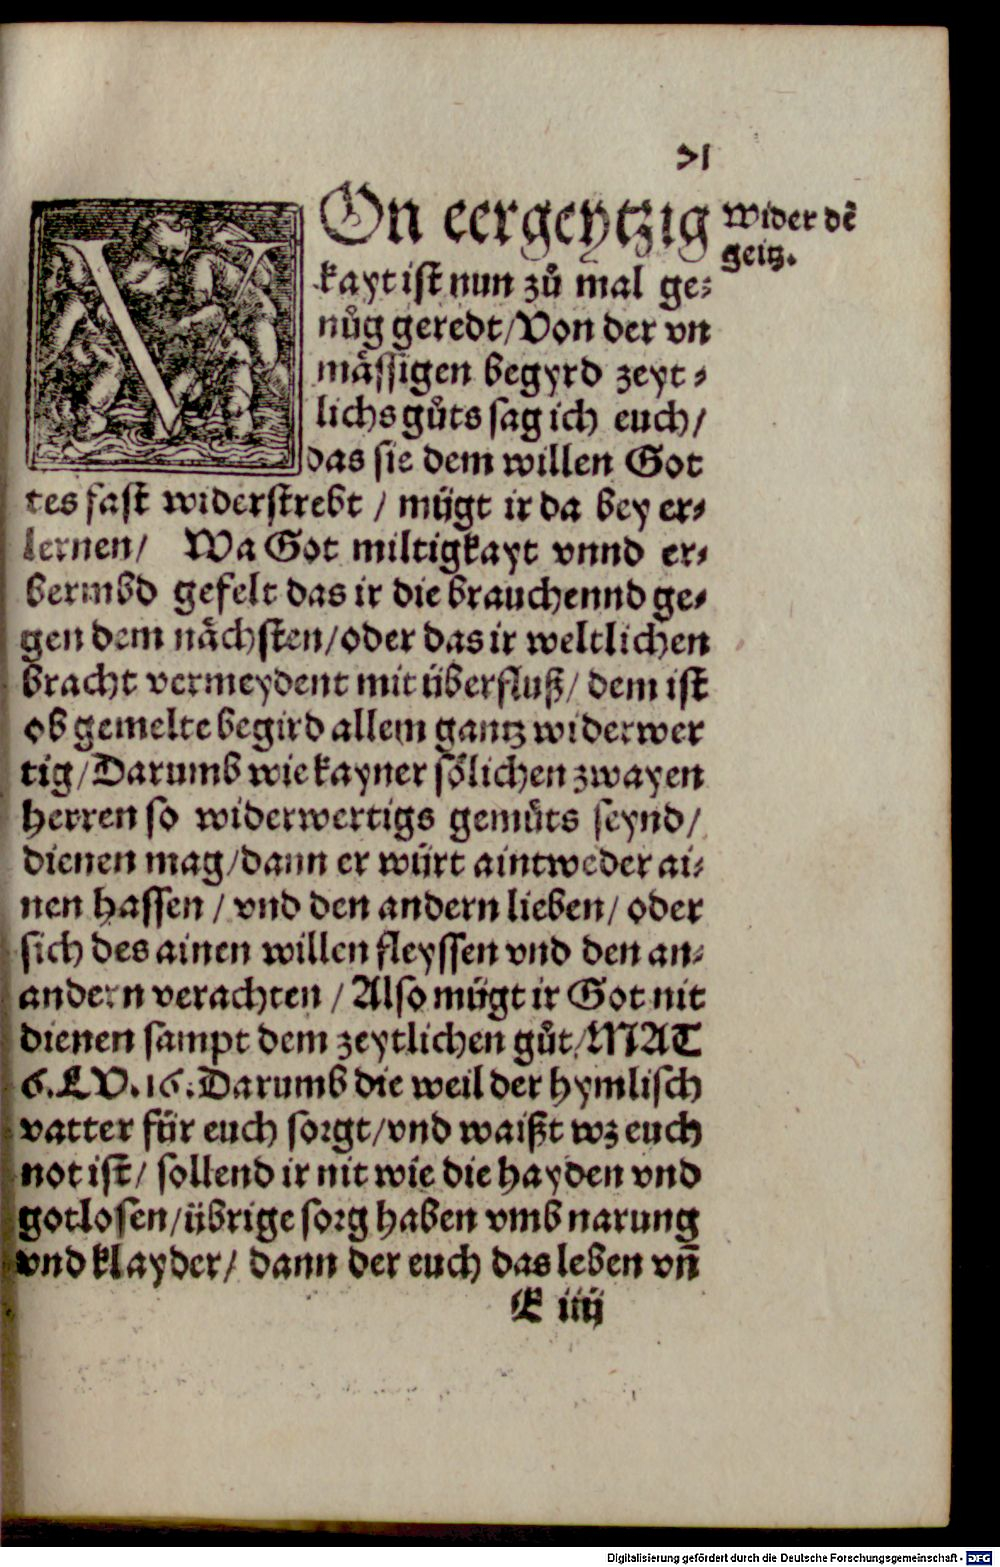 71
VOn eergeytzig
Wider dē
geitz.
kayt ist nun zů mal ge⸗
nůg geredt/Von der vn
mässigen begyrd zeyt⸗
lichs gůts sag ich euch/
das sie dem willen Got
tes fast widerstrebt / mügt ir da bey er⸗
lernen/ Wa Got miltigkayt vnnd er⸗
bermbd gefelt das ir die brauchennd ge⸗
gen dem nächsten/oder das ir weltlichen
bracht vermeydent mit überfluß/ dem ist
ob gemelte begird allem gantz widerwer
tig/Darumb wie kayner sölichen zwayen
herren so widerwertigs gemůts seynd/
dienen mag/dann er würt aintweder ai⸗
nen hassen / vnd den andern lieben/ oder
sich des ainen willen fleyssen vnd den an⸗
andern verachten / Also mügt ir Got nit
dienen sampt dem zeytlichen gůt/MAT
6.LV.16.Darumb die weil der hymlisch
vatter für euch sorgt/vnd waißt wz euch
not ist/ sollend ir nit wie die hayden vnd
gotlosen/übrige sorg haben vmb narung
vnd klayder/ dann der euch das leben vñ
K iiij
Digitalisierung gefördert durch die Deutsche Forschungsgemeinschaft - DFG